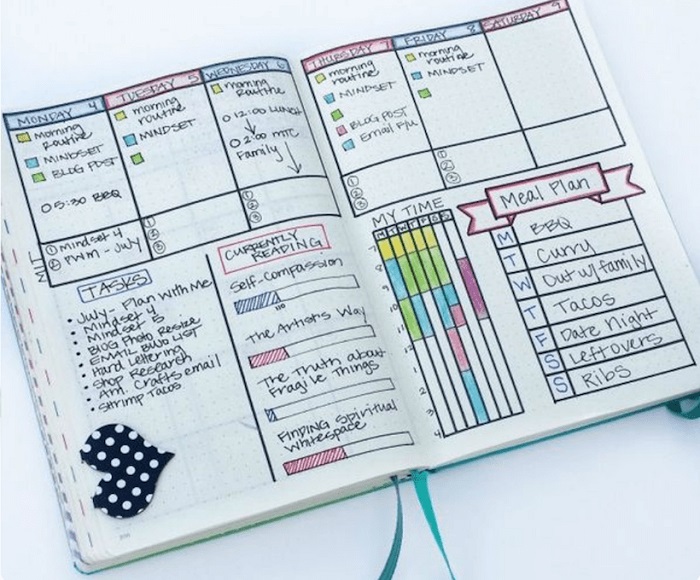 MONDAY 4
morning
routine
MINDSET
BLOG POST
05:30 BBQ
MIT
① Mindset 4
② PWM - July
TUESDAY 5
morning
routine
MINDSET
①
②
③
WEDNESDAY 6
morning
routine
012:00 LUNCH
02:00 MTC
Family
①
②
③
THURSDAY 7
morning
routine
MINDSET
BLOG POST
Email F/U
①
②
③
FRIDAY 8
morning
routine
MINDSET
①
②
③
SATURDAY 9
TASKS
• July - Plan with Me
• Mindset 4
• Mindset 5
• BLOG Photo Resize
• EMAIL BUJO LIST
• Hand Lettering
• Shop Research
• Am. Crafts email
• Shrimp Tacos
CURRENTLY
READING
Self-Compassion
110
The Artist's Way
The Truth about
Fragile Things
FINDING Spiritual
Whitespace
MY TIME
M T W T F S S
7
8
9
10
11
12
1
2
3
4
Meal Plan
M BBQ
T Curry
W Out w/ family
T Tacos
F Date Night
S Leftovers
S Ribs